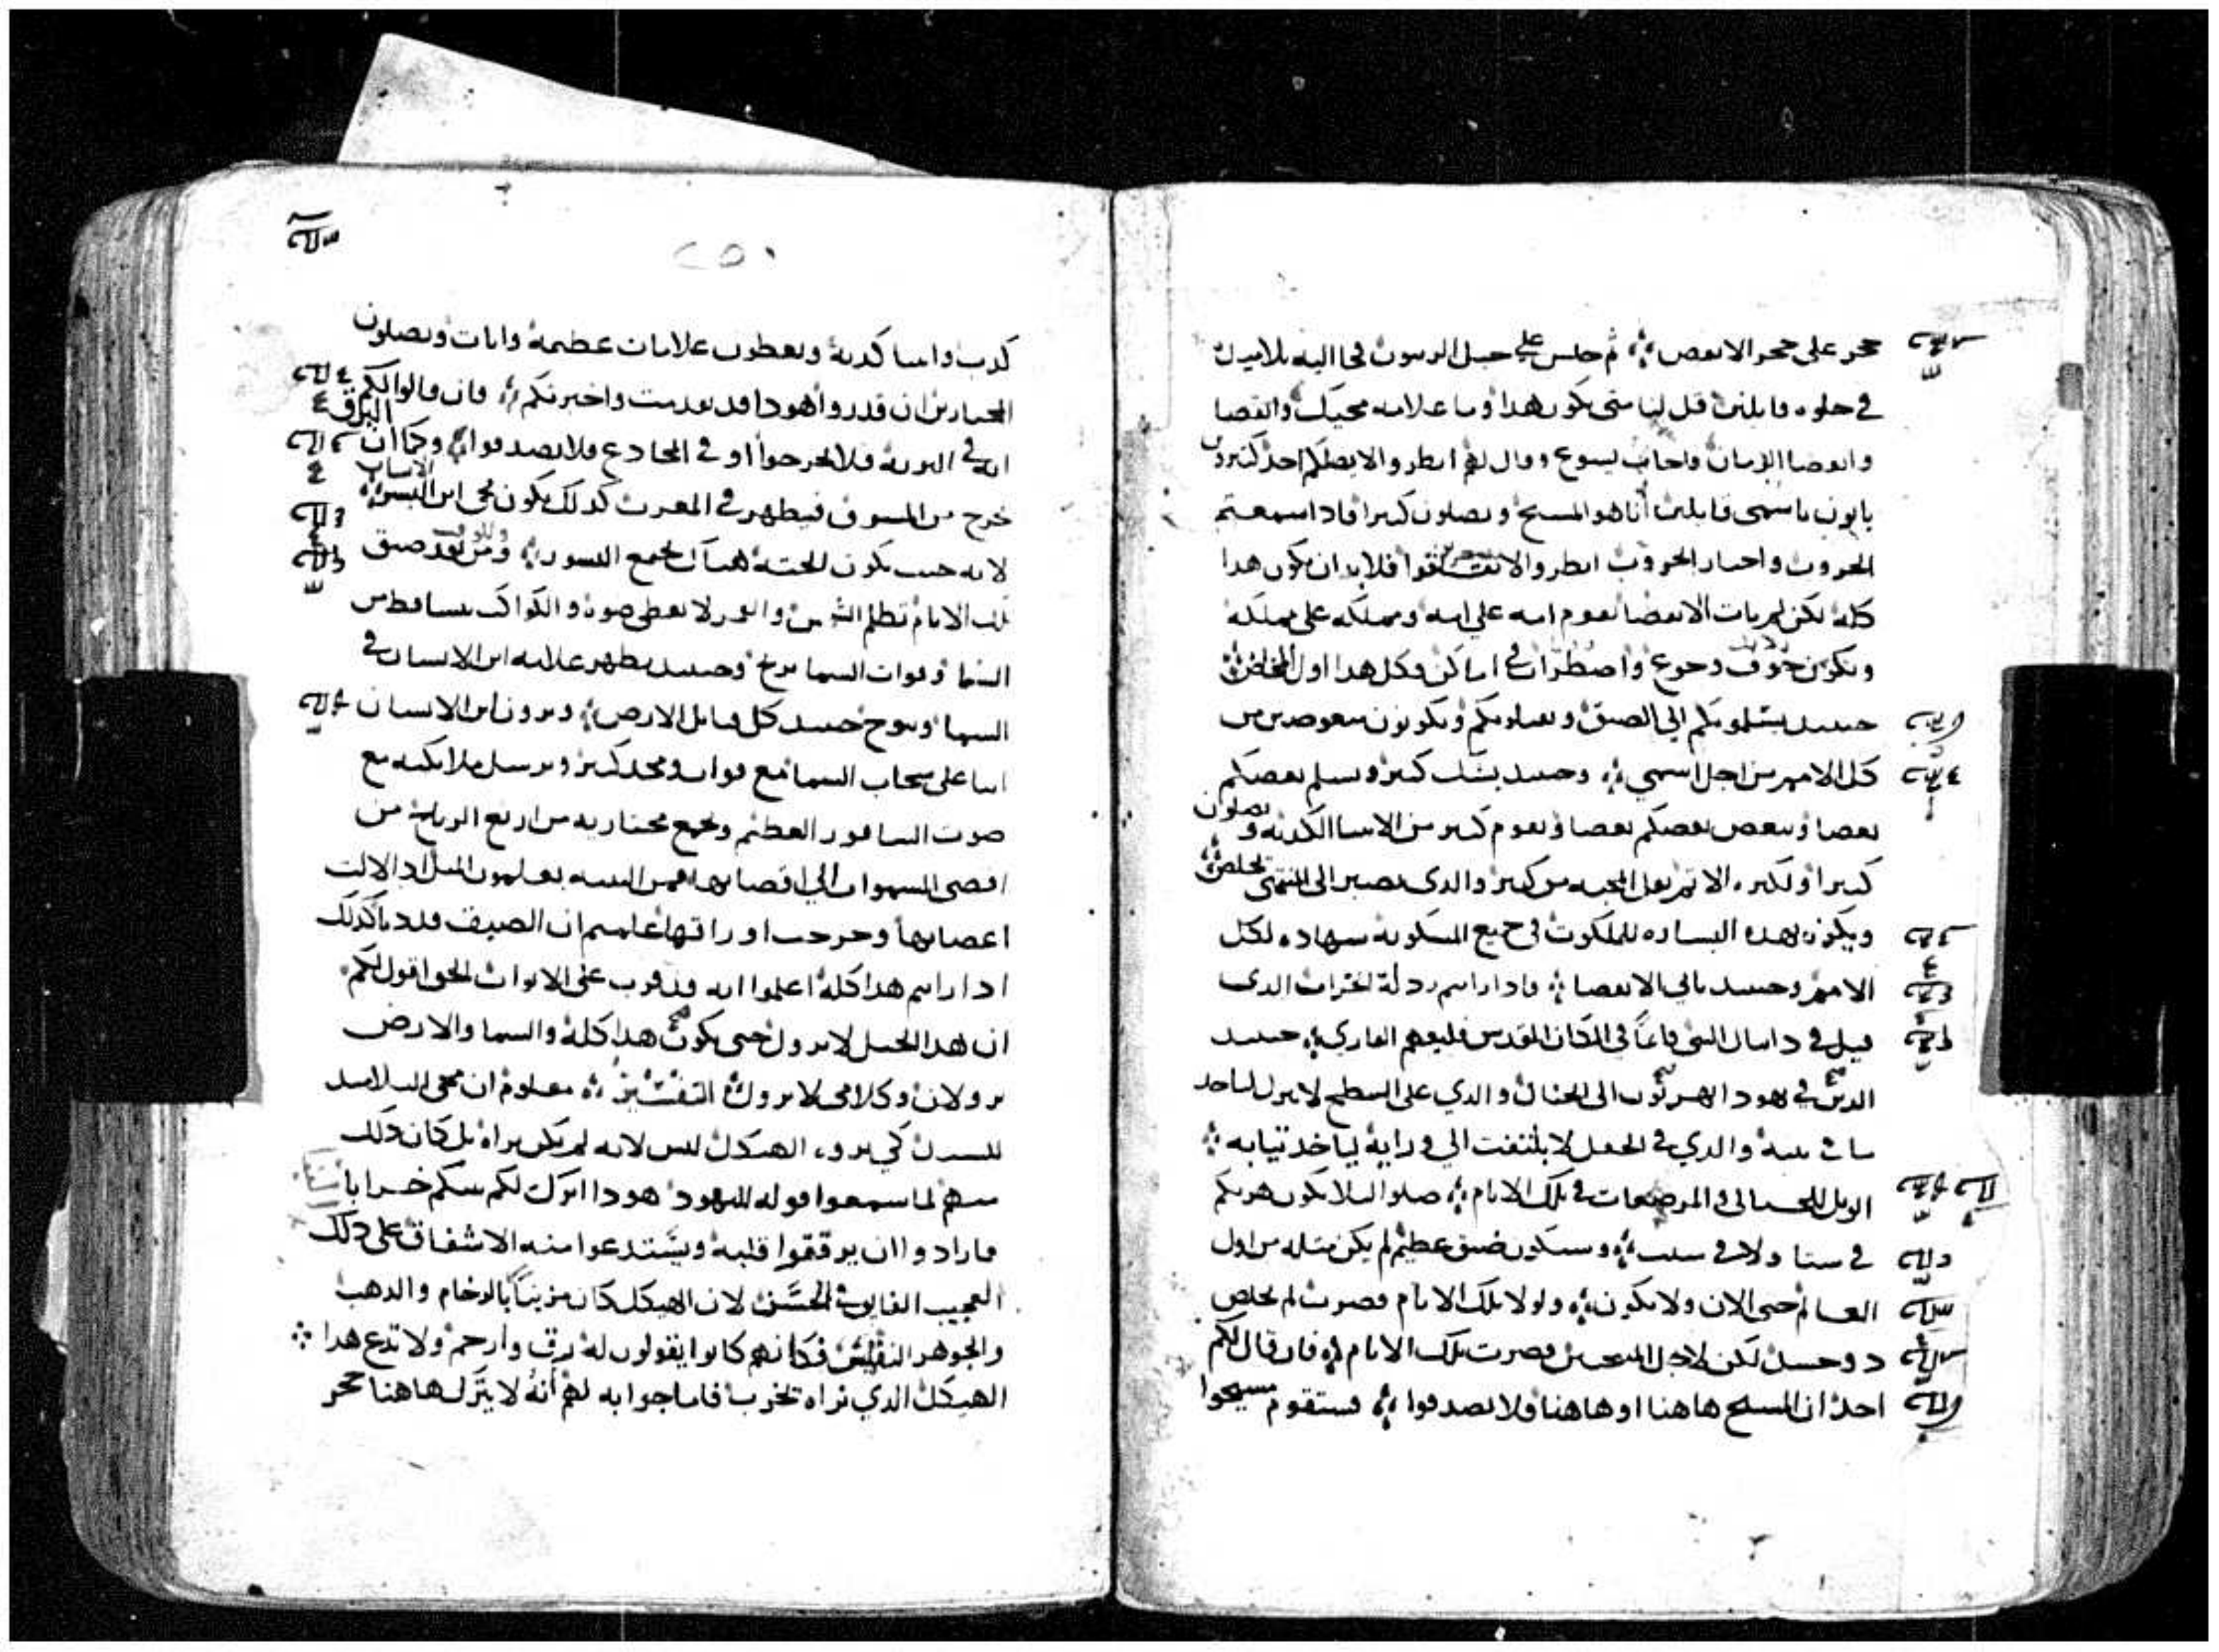 حجر على حجر الا نقض ثم جلس على جبل الزيتون فجا اليه تلاميذه
في خلوه قايلين قل لنا متى يكون هذا وما علامه مجيك وانقضا
وانقضا الزمان واجاب يسوع وقال لهم انظروا لا يضلكم احد كثيرون
ياتون باسمي قايلين أنا هو المسيح ويضلون كثيرا فاذا سمعتم
الحروب واخبار الحروب انظروا لا تقلقوا فلابد ان يكون هذا
كله لكن لم يات الانقضا تقوم امه على امه ومملكه على مملكه
ويكون خوف وجوع واضطراب في اماكن وكل هذا اول المخاض
حينيد يسلمونكم الى الضيق ويقتلونكم وتكونون مبغوضين من
كل الامم من اجل اسمي وحينيد يشك كثير ويسلم بعضكم
بعضا ويبغض بعضكم بعضا ويقوم كثير من الانبيا الكذبه ويضلون
كثيرا ولكثره الاثم تقل المحبه من كثير والذي يصبر الى المنتهى يخلص
ويكون بهذه البشاره للملكوت في جميع المسكونه شهاده لكل
الامم وحينيد ياتي الانقضا فاذا رايتم رذلة الخراب الذي
قيل في دانيال النبي قايماً في المكان المقدس فليفهم القاري حينيد
الذين في يهودا يهربون الى الجبال والذي على السطح لا ينزل لياخذ
ما في بيته والذي في الحقل لا يلتفت الى ورايه لياخذ ثيابه
الويل للحبالى والمرضعات في تلك الايام صلوا ليلا يكون هربكم
في شتا ولا في سبت وسيكون ضيق عظيم لم يكن مثله من اول
العالم حتى الان ولا يكون ولولا تلك الايام قصرت لم يخلص
ذو جسد لكن لاجل المنتخبين قصرت تلك الايام فان قال لكم
احد ان المسيح هاهنا او هاهنا فلا تصدقوا فستقوم مسيحوا
٢٥١
كذب وانبيا كذبة ويعطون علامات عظيمة وايات ويضلون
المختارين ان قدروا هوذا قد تقدمت واخبرتكم فان قالوا لكم
انه في البرية فلا تخرجوا او في المخادع فلا تصدقوا وكما أن البرق
خرج من المشرق فيظهر في المغرب كذلك يكون مجى ابن الانسان
لانه حيث تكون الجثة هناك تجمع النسور ومن بعد ضيق
تلك الايام تظلم الشمس والقمر لا يعطى ضوه والكواكب تتساقط من
السما وقوات السما ترتج وحينيد يظهر علامه ابن الانسان في
السما وتنوح حينيد كل قبايل الارض ويرون ابن الانسان
اتيا على سحاب السما مع قوات ومجد كثير ويرسل ملايكته مع
صوت السافور العظيم وتجمع مختاريه من اربع الرياح من
اقصى السموات الى اقصايها فمن التينه تعلمون المثل اذا لانت
اغصانها وخرجت اوراقها علمتم ان الصيف قد دنا كذلك
اذا رايتم هذا كله اعلموا انه قد قرب على الابواب الحق اقول لكم
ان هذا الجيل لا يزول حتى يكون هذا كله والسما والارض
يزولان وكلامي لا يزول التفسير معلوم ان مجى التلاميذ
للسيد كي يرو الهيكل ليس لانه لم يكن يراه بل كان ذلك
منهم لما سمعوا قوله لليهود هوذا اترك لكم بيتكم خرابا
فارادوا ان يرققوا قلبه ويستدعوا منه الاشفاق على ذلك
العجيب الفايق الحسن لان الهيكل كان مزيناً بالرخام والذهب
والجوهر النفيس فكانهم كانوا يقولون له رق وارحم ولا تدع هذا
الهيكل الذي نراه يخرب فاما جوابه لهم أنه لا يترك هاهنا حجر